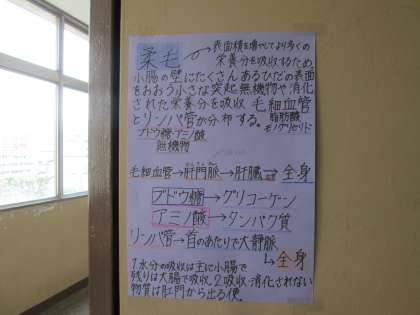 柔毛 → 表面積を増やしてより多くの
栄養分を吸収するため
小腸の壁にたくさんあるひだの表面
をおおう小さな突起 無機物や、消化
された栄養分を吸収 毛細血管
とリンパ管が分布する。 脂肪酸
モノグリセリド
ブドウ糖・アミノ酸
無機物
毛細血管→肝門脈→肝臓→全身
ブドウ糖→グリコーゲン
アミノ酸→タンパク質
リンパ管→首のあたりで大静脈
↳全身
1.水分の吸収は主に小腸で
残りは大腸で吸収。2.吸収・消化されない
物質は肛門から出る便。